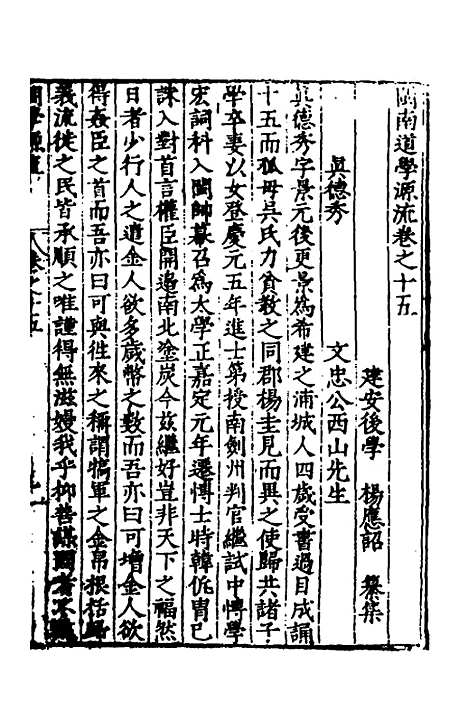 閩南道學源流卷之十五
建安後學 楊應詔 纂集
真德秀 文忠公西山先生
真德秀字景元後更景為希建之浦城人四歲受書過目成誦
十五而孤母吳氏力貧教之同郡楊圭見而異之使歸共諸子
學卒妻以女登慶元五年進士第授南劍州判官繼試中博學
宏詞科入閩帥幕召為太學正嘉定元年遷博士時韓侂胄已
誅入對首言權臣開邊南北塗炭今茲繼好豈非天下之福然
日者少行人之遣金人欲多歲幣之數而吾亦曰可增金人欲
得姦臣之首而吾亦曰可與往來之稱謂犒軍之金帛根括歸
義流徙之民皆承順之唯謹得無滋嫚我乎抑善謀國者不